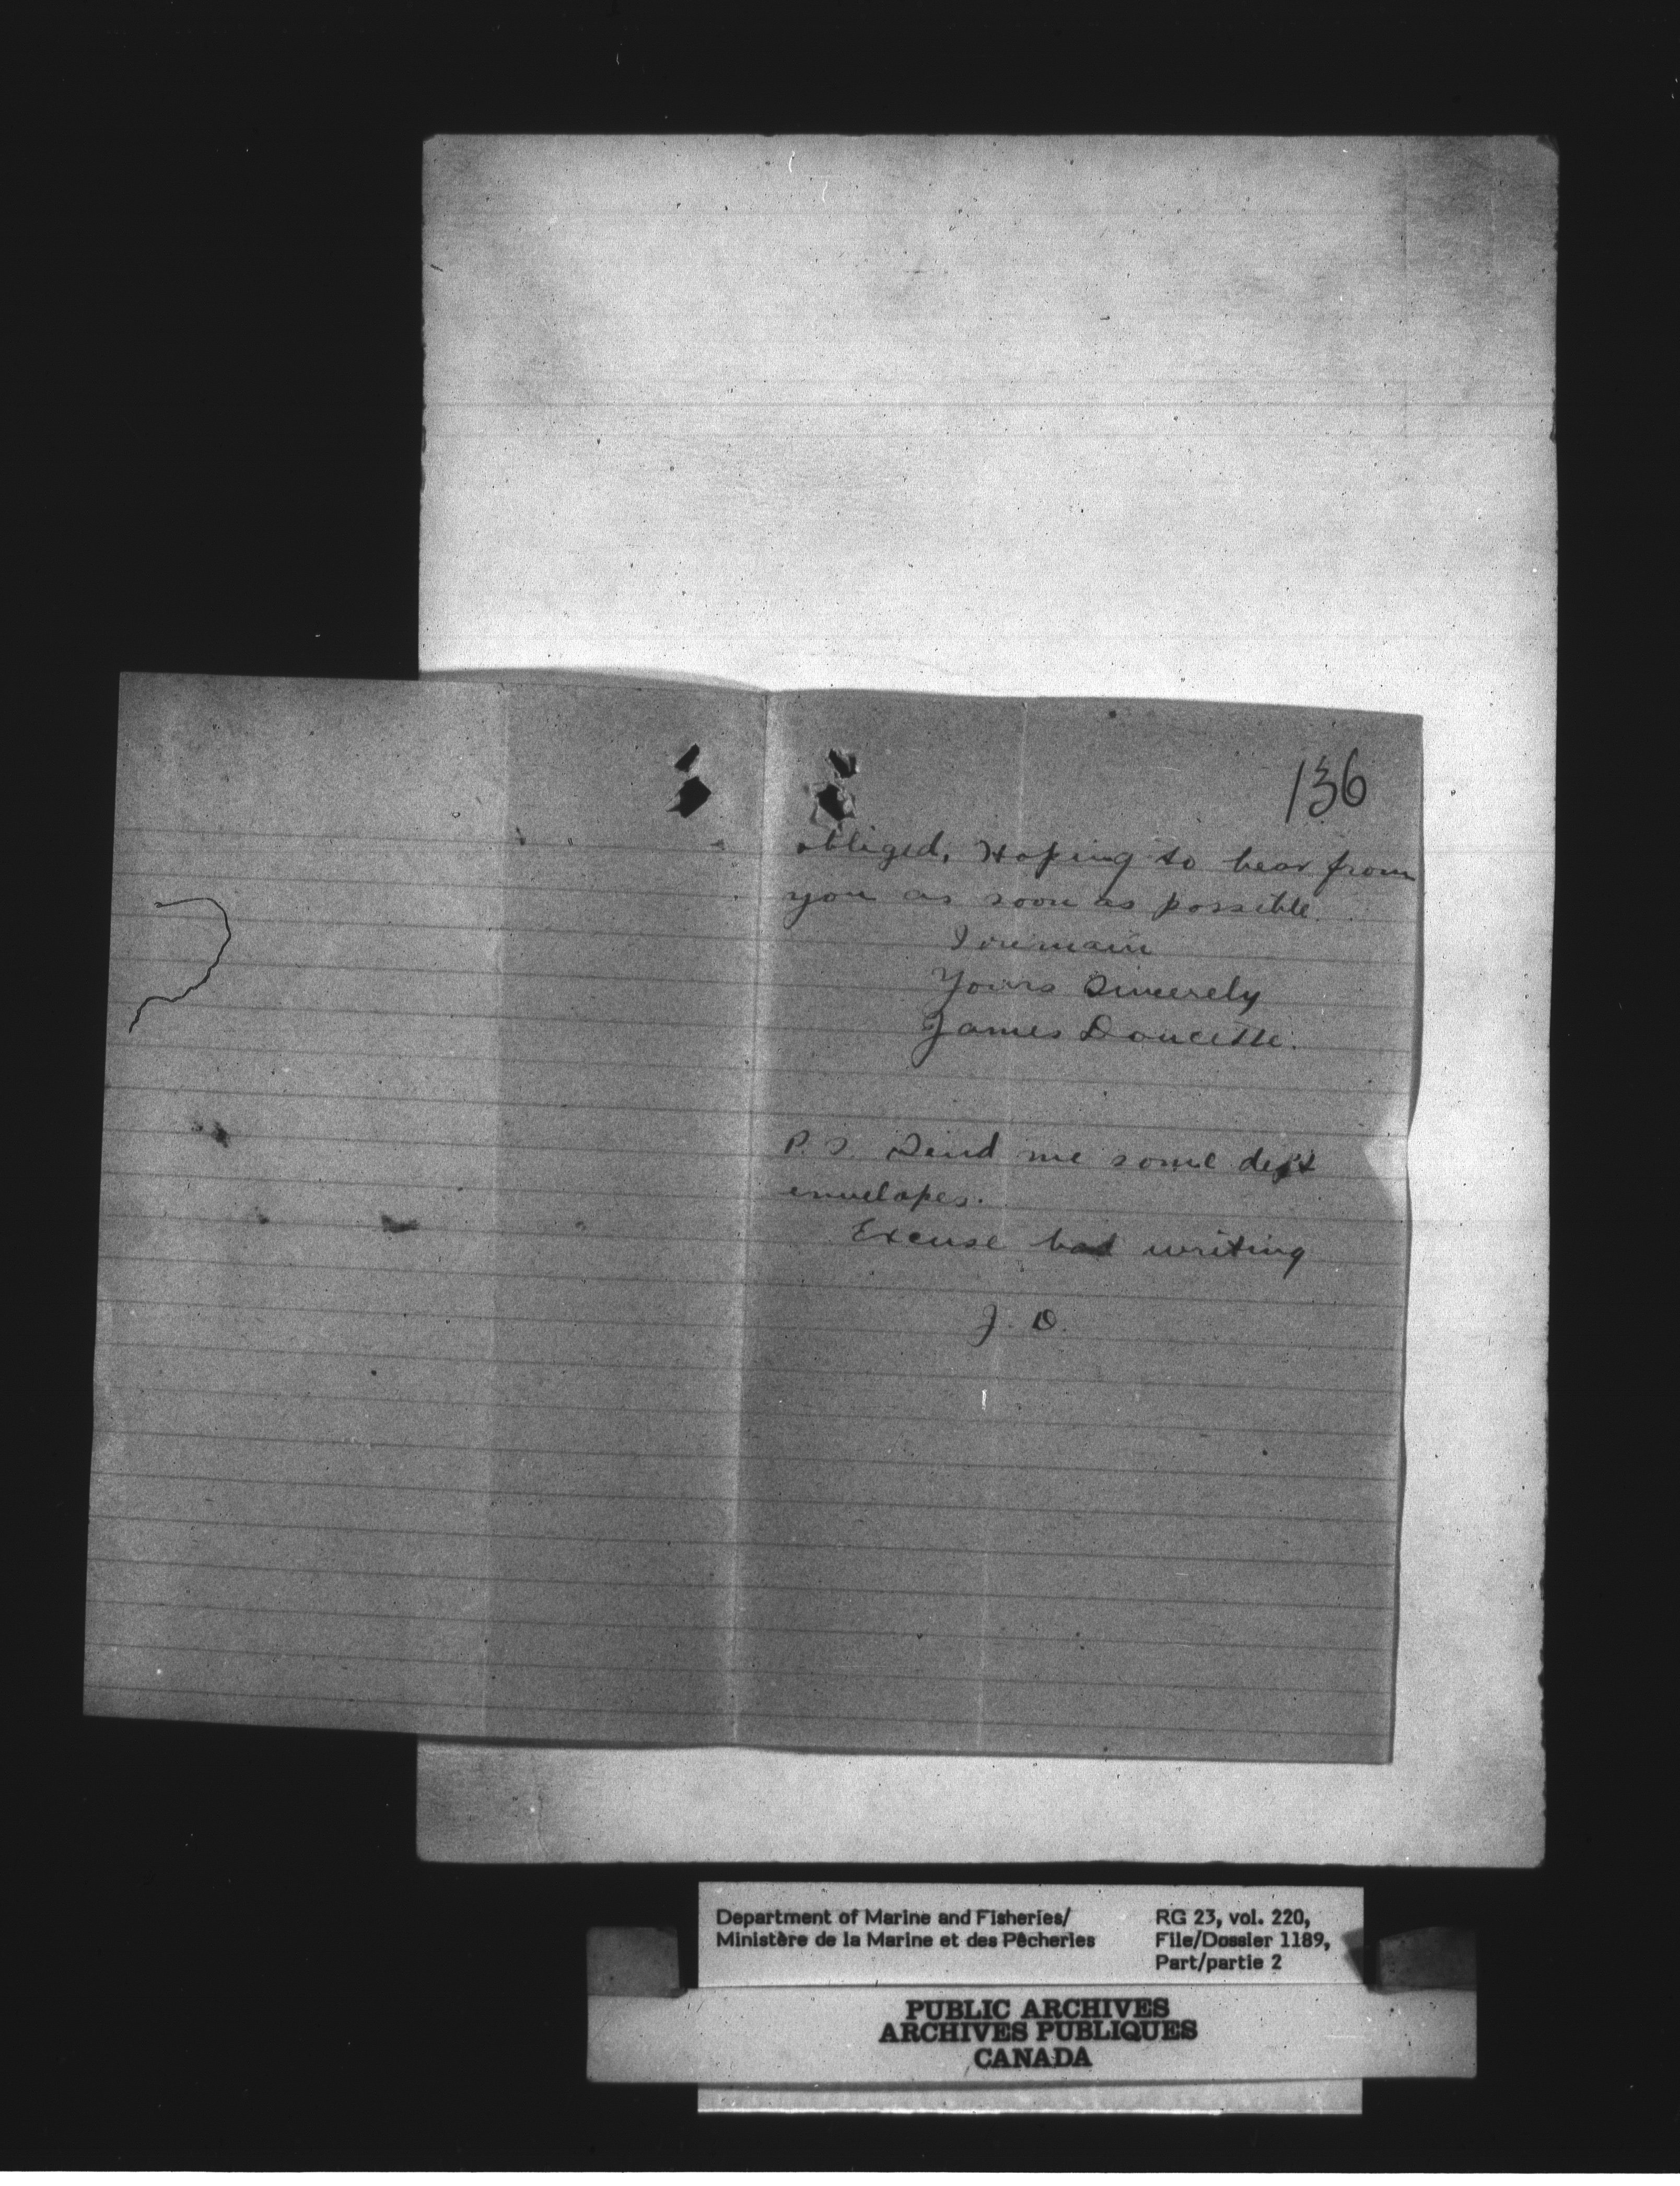 136
obliged, Hoping to hear from
you as soon as possible.
I remain
Yours Sincerely
James Doucette.
P.S. Send me some dept
envelopes.
Excuse bad writing
J. D.
Department of Marine and Fisheries/
Ministère de la Marine et des Pêcheries
RG 23, vol. 220,
File/Dossier 1189,
Part/partie 2
PUBLIC ARCHIVES
ARCHIVES PUBLIQUES
CANADA